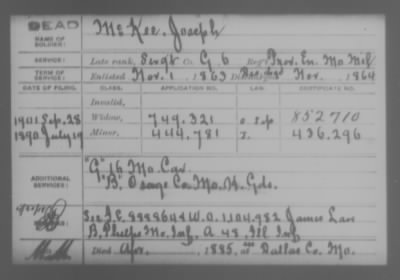 DEAD
NAME OF SOLDIER: McKee, Joseph
SERVICE: Late rank, Sergt Co. G 6 Reg't Prov. En. Mo Mil
TERM OF SERVICE: Enlisted Nov. 1, 1863 Nov. 1864
DATE OF FILING. CLASS. APPLICATION NO. LAW. CERTIFICATE NO.
Invalid,
1901 Sep. 28 Widow, 749.321 o. Sep 852710
1890 July 19 Minor, 444.781 436.296
ADDITIONAL SERVICES: "G" 16 Mo Cav.
"B" Osage Co. Mo. H. Gds.
See I.C. 888864 & W.O. 1104.982 James Law
B. Phelps Mo. Inf, A 48, Ill Inf
Died Apr., 1885, at Dallas Co. Mo.